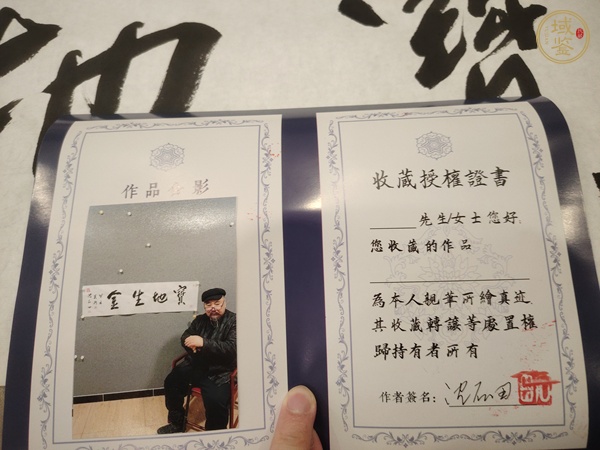 域鉴
作品合影
寶地生金
收藏授權證書
先生/女士您好
您收藏的作品
為本人親筆所繪真迹
其收藏轉讓等處置權
歸持有者所有
作者簽名: